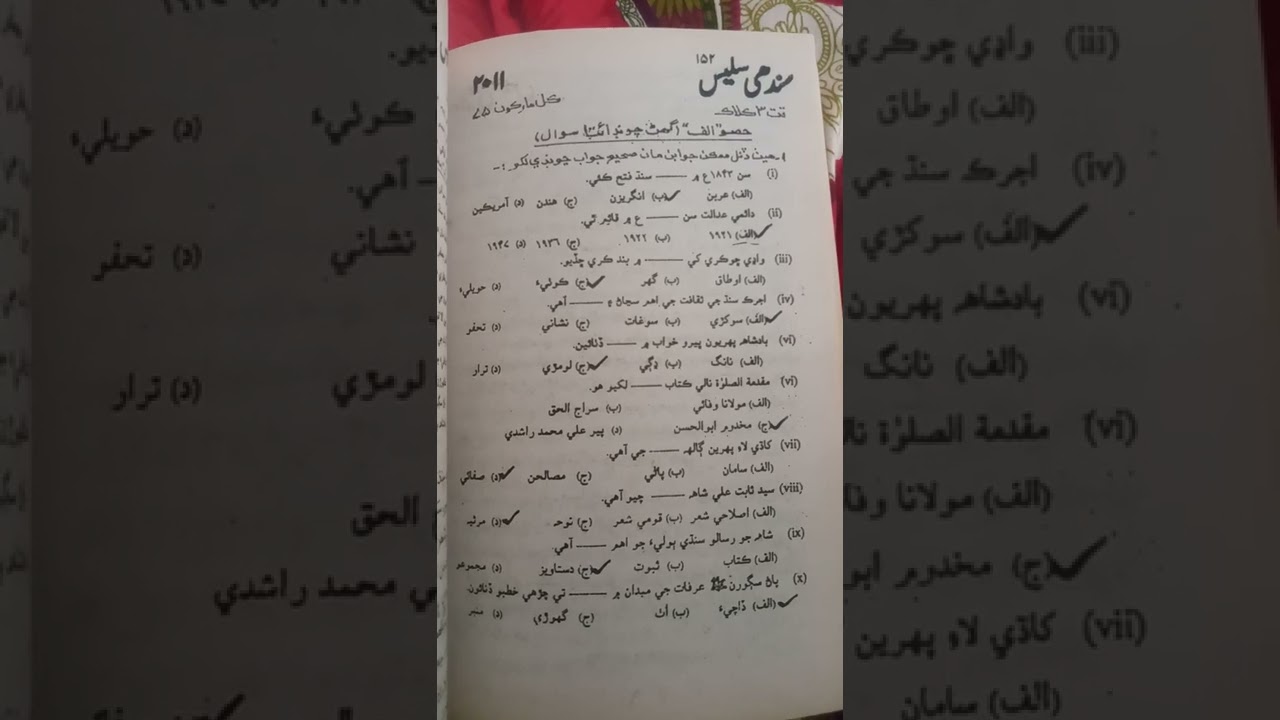 ۱۵۲
سندهي سليس ۲۰۱۱
تت ۳ ڪلاڪ ڪل مارڪون ۷۵
حصو "الف" (گهڻ چونڊ ائٽب سوال)
۱۔ هيٺ ڏنل ممڪن جوابن مان صحيح جواب چونڊي لکو:-
(i) سن ۱۸۴۳ع ۾ ——— سنڌ فتح ڪئي.
(الف) عربن (ب) انگريزن (ج) هندن (د) آمريڪين
(ii) دائمي عدالت سن ——— ع ۾ قائم ٿي.
(الف) ۱۹۲۱ (ب) ۱۹۲۲ (ج) ۱۹۳۶ (د) ۱۹۴۷
(iii) واڍي ڇوڪري کي ——— ۾ بند ڪري ڇڏيو.
(الف) اوطاق (ب) گهر (ج) ڪوٺيء (د) حويليء
(iv) اجرڪ سنڌ جي ثقافت جي اهم سڃاڻ ۽ ——— آهي.
(الف) سوکڙي (ب) سوغات (ج) نشاني (د) تحفو
(vi) بادشاهه پهريون ڀيرو خواب ۾ ——— ڏٺائين.
(الف) نانگ (ب) ڍڳي (ج) لومڙي (د) ترار
(vi) مقدمة الصلوٰة نالي ڪتاب ——— لکيو هو.
(الف) مولانا وفائي (ب) سراج الحق
(ج) مخدوم ابوالحسن (د) پير علي محمد راشدي
(vii) کاڌي لاءِ پهرين ڳالهه ——— جي آهي.
(الف) سامان (ب) پاڻي (ج) مصالحن (د) صفائي
(viii) سيد ثابت علي شاهه ——— چيو آهي.
(الف) اصلاحي شعر (ب) قومي شعر (ج) نوحه (د) مرثيه
(ix) شاهه جو رسالو سنڌي ٻوليء جو اهم ——— آهي.
(الف) ڪتاب (ب) ثبوت (ج) دستاويز (د) مجموعو
(x) پاڻ سڳورن ﷺ عرفات جي ميدان ۾ ——— تي چڙهي خطبو ڏنائون.
(الف) ڏاچيء (ب) اٺ (ج) گهوڙي (د) منبر